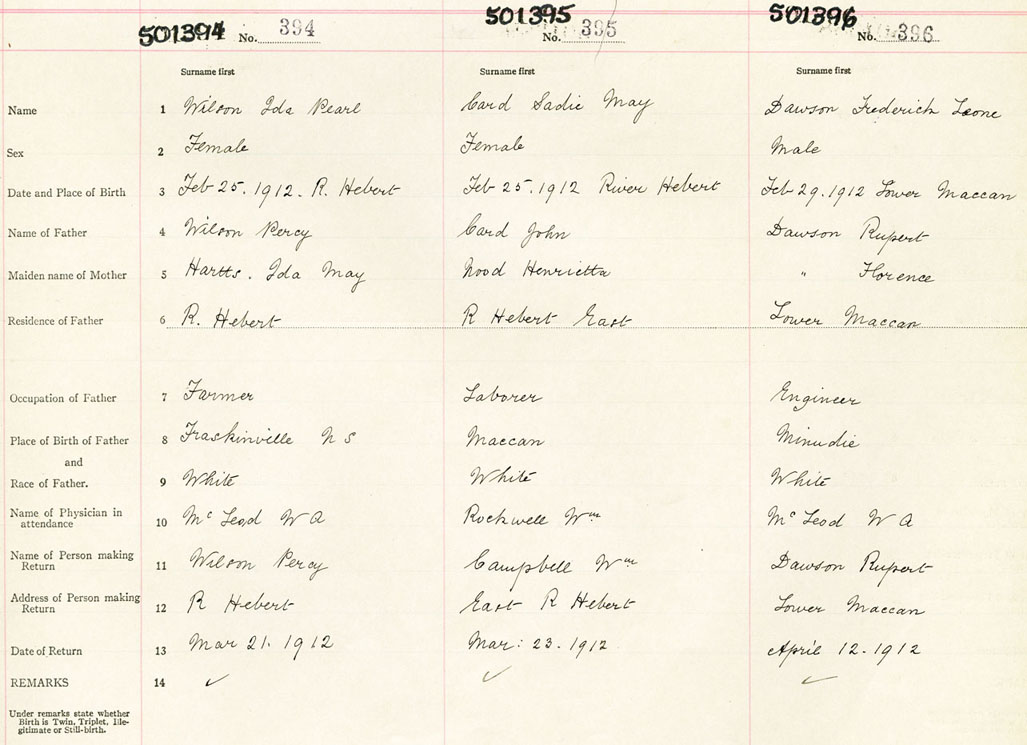 501394 No. 394 501395 No. 395 501396 No. 396
Surname first Surname first Surname first
Name 1 Wilson Ida Pearl Card Sadie May Dawson Frederick Leone
Sex 2 Female Female Male
Date and Place of Birth 3 Feb 25. 1912. R. Hebert Feb 25. 1912 River Hebert Feb 29. 1912 Lower Maccan
Name of Father 4 Wilson Percy Card John Dawson Rupert
Maiden name of Mother 5 Ida May Henrietta " Florence
Residence of Father 6 R. Hebert R Hebert East Lower Maccan
Occupation of Father 7 Farmer Laborer Engineer
Place of Birth of Father 8 Fraskinville N S Maccan Minudie
and
Race of Father. 9 White White White
Name of Physician in
attendance 10 Mc Leod W A Rockwell Wm Mc Leod W A
Name of Person making
Return 11 Wilson Percy Campbell Wm Dawson Rupert
Address of Person making
Return 12 R Hebert East R Hebert Lower Maccan
Date of Return 13 Mar 21. 1912 Mar: 23. 1912 April 12. 1912
REMARKS 14 ✓ ✓ ✓
Under remarks state whether
Birth is Twin, Triplet, Ille-
gitimate or Still-birth.